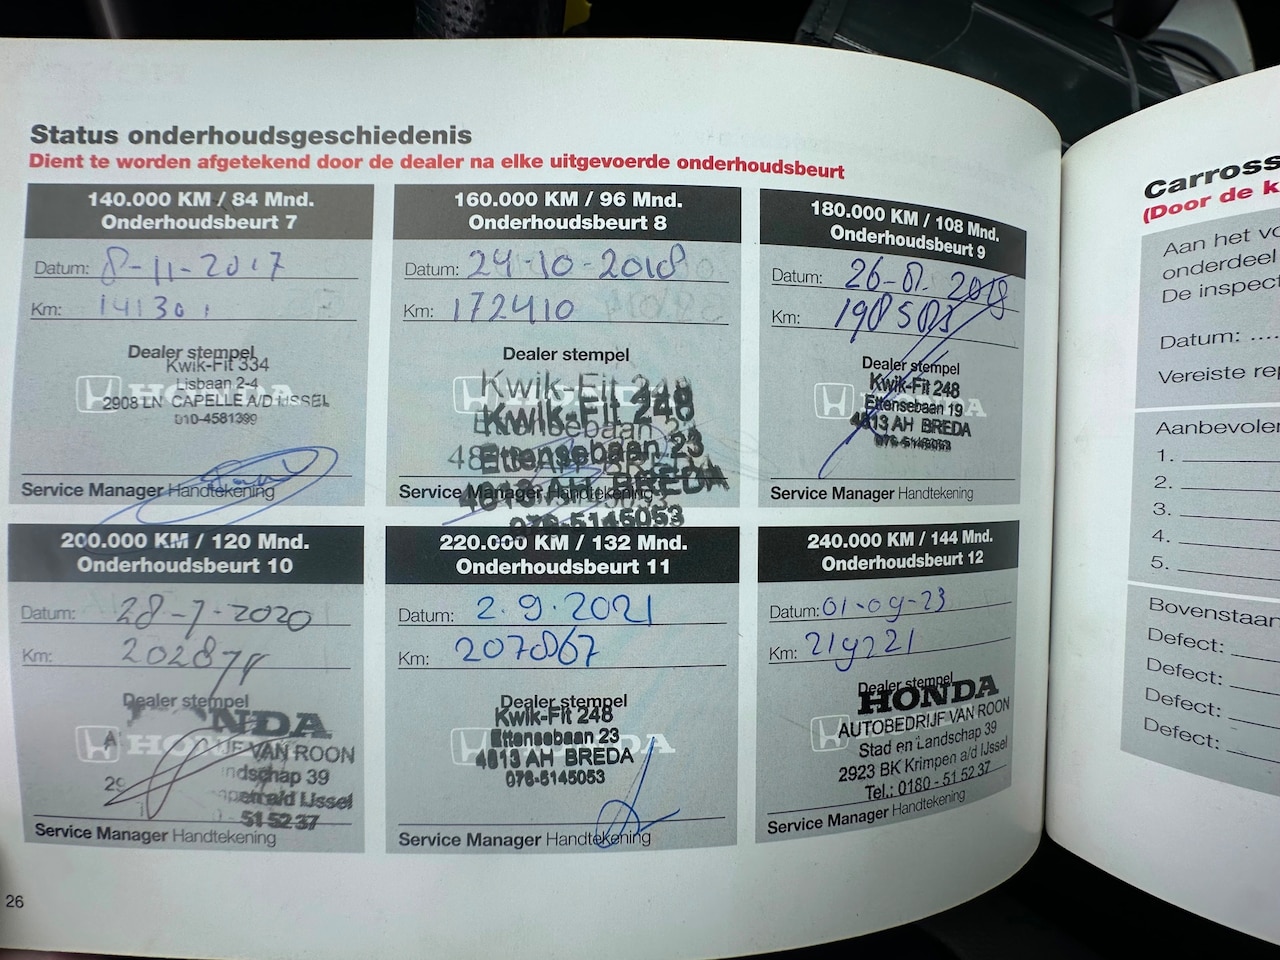 Status onderhoudsgeschiedenis
Dient te worden afgetekend door de dealer na elke uitgevoerde onderhoudsbeurt
140.000 KM / 84 Mnd.
Onderhoudsbeurt 7
Datum: 8-11-2017
Km: 141301
Dealer stempel
Kwik-Fit 334
Lisbaan 2-4
HONDA
2908 LN CAPELLE A/D IJSSEL
010-4581399
Service Manager Handtekening
160.000 KM / 96 Mnd.
Onderhoudsbeurt 8
Datum: 24-10-2018
Km: 172410
Dealer stempel
Kwik-Fit 248
Kwik-Fit 248
Ettensebaan 23
4813 AH BREDA
076-5145053
Service Manager Handtekening
180.000 KM / 108 Mnd.
Onderhoudsbeurt 9
Datum: 26-8-
Km:
Dealer stempel
Kwik-Fit 248
Ettensebaan 19
HONDA
4813 AH BREDA
076-5145053
Service Manager Handtekening
200.000 KM / 120 Mnd.
Onderhoudsbeurt 10
Datum: 28-7-2020
Km:
Dealer stempel
NDA
HONDA
IJF VAN ROON
ndschap 39
29
pen a/d IJssel
51 52 37
Service Manager Handtekening
220.000 KM / 132 Mnd.
Onderhoudsbeurt 11
Datum: 2.9.2021
Km: 207867
Dealer stempel
Kwik-Fit 248
Ettensebaan 23
HONDA
4813 AH BREDA
076-5145053
Service Manager Handtekening
240.000 KM / 144 Mnd.
Onderhoudsbeurt 12
Datum: 01-09-23
Km: 219221
Dealer stempel
HONDA
AUTOBEDRIJF VAN ROON
Stad en Landschap 39
2923 BK Krimpen a/d IJssel
Tel.: 0180 - 51 52 37
Service Manager Handtekening
26
Carross
(Door de k
Aan het vo
onderdeel
De inspect
Datum: ....
Vereiste rep
Aanbevolen
1.
2.
3.
4.
5.
Bovenstaan
Defect:
Defect:
Defect:
Defect: